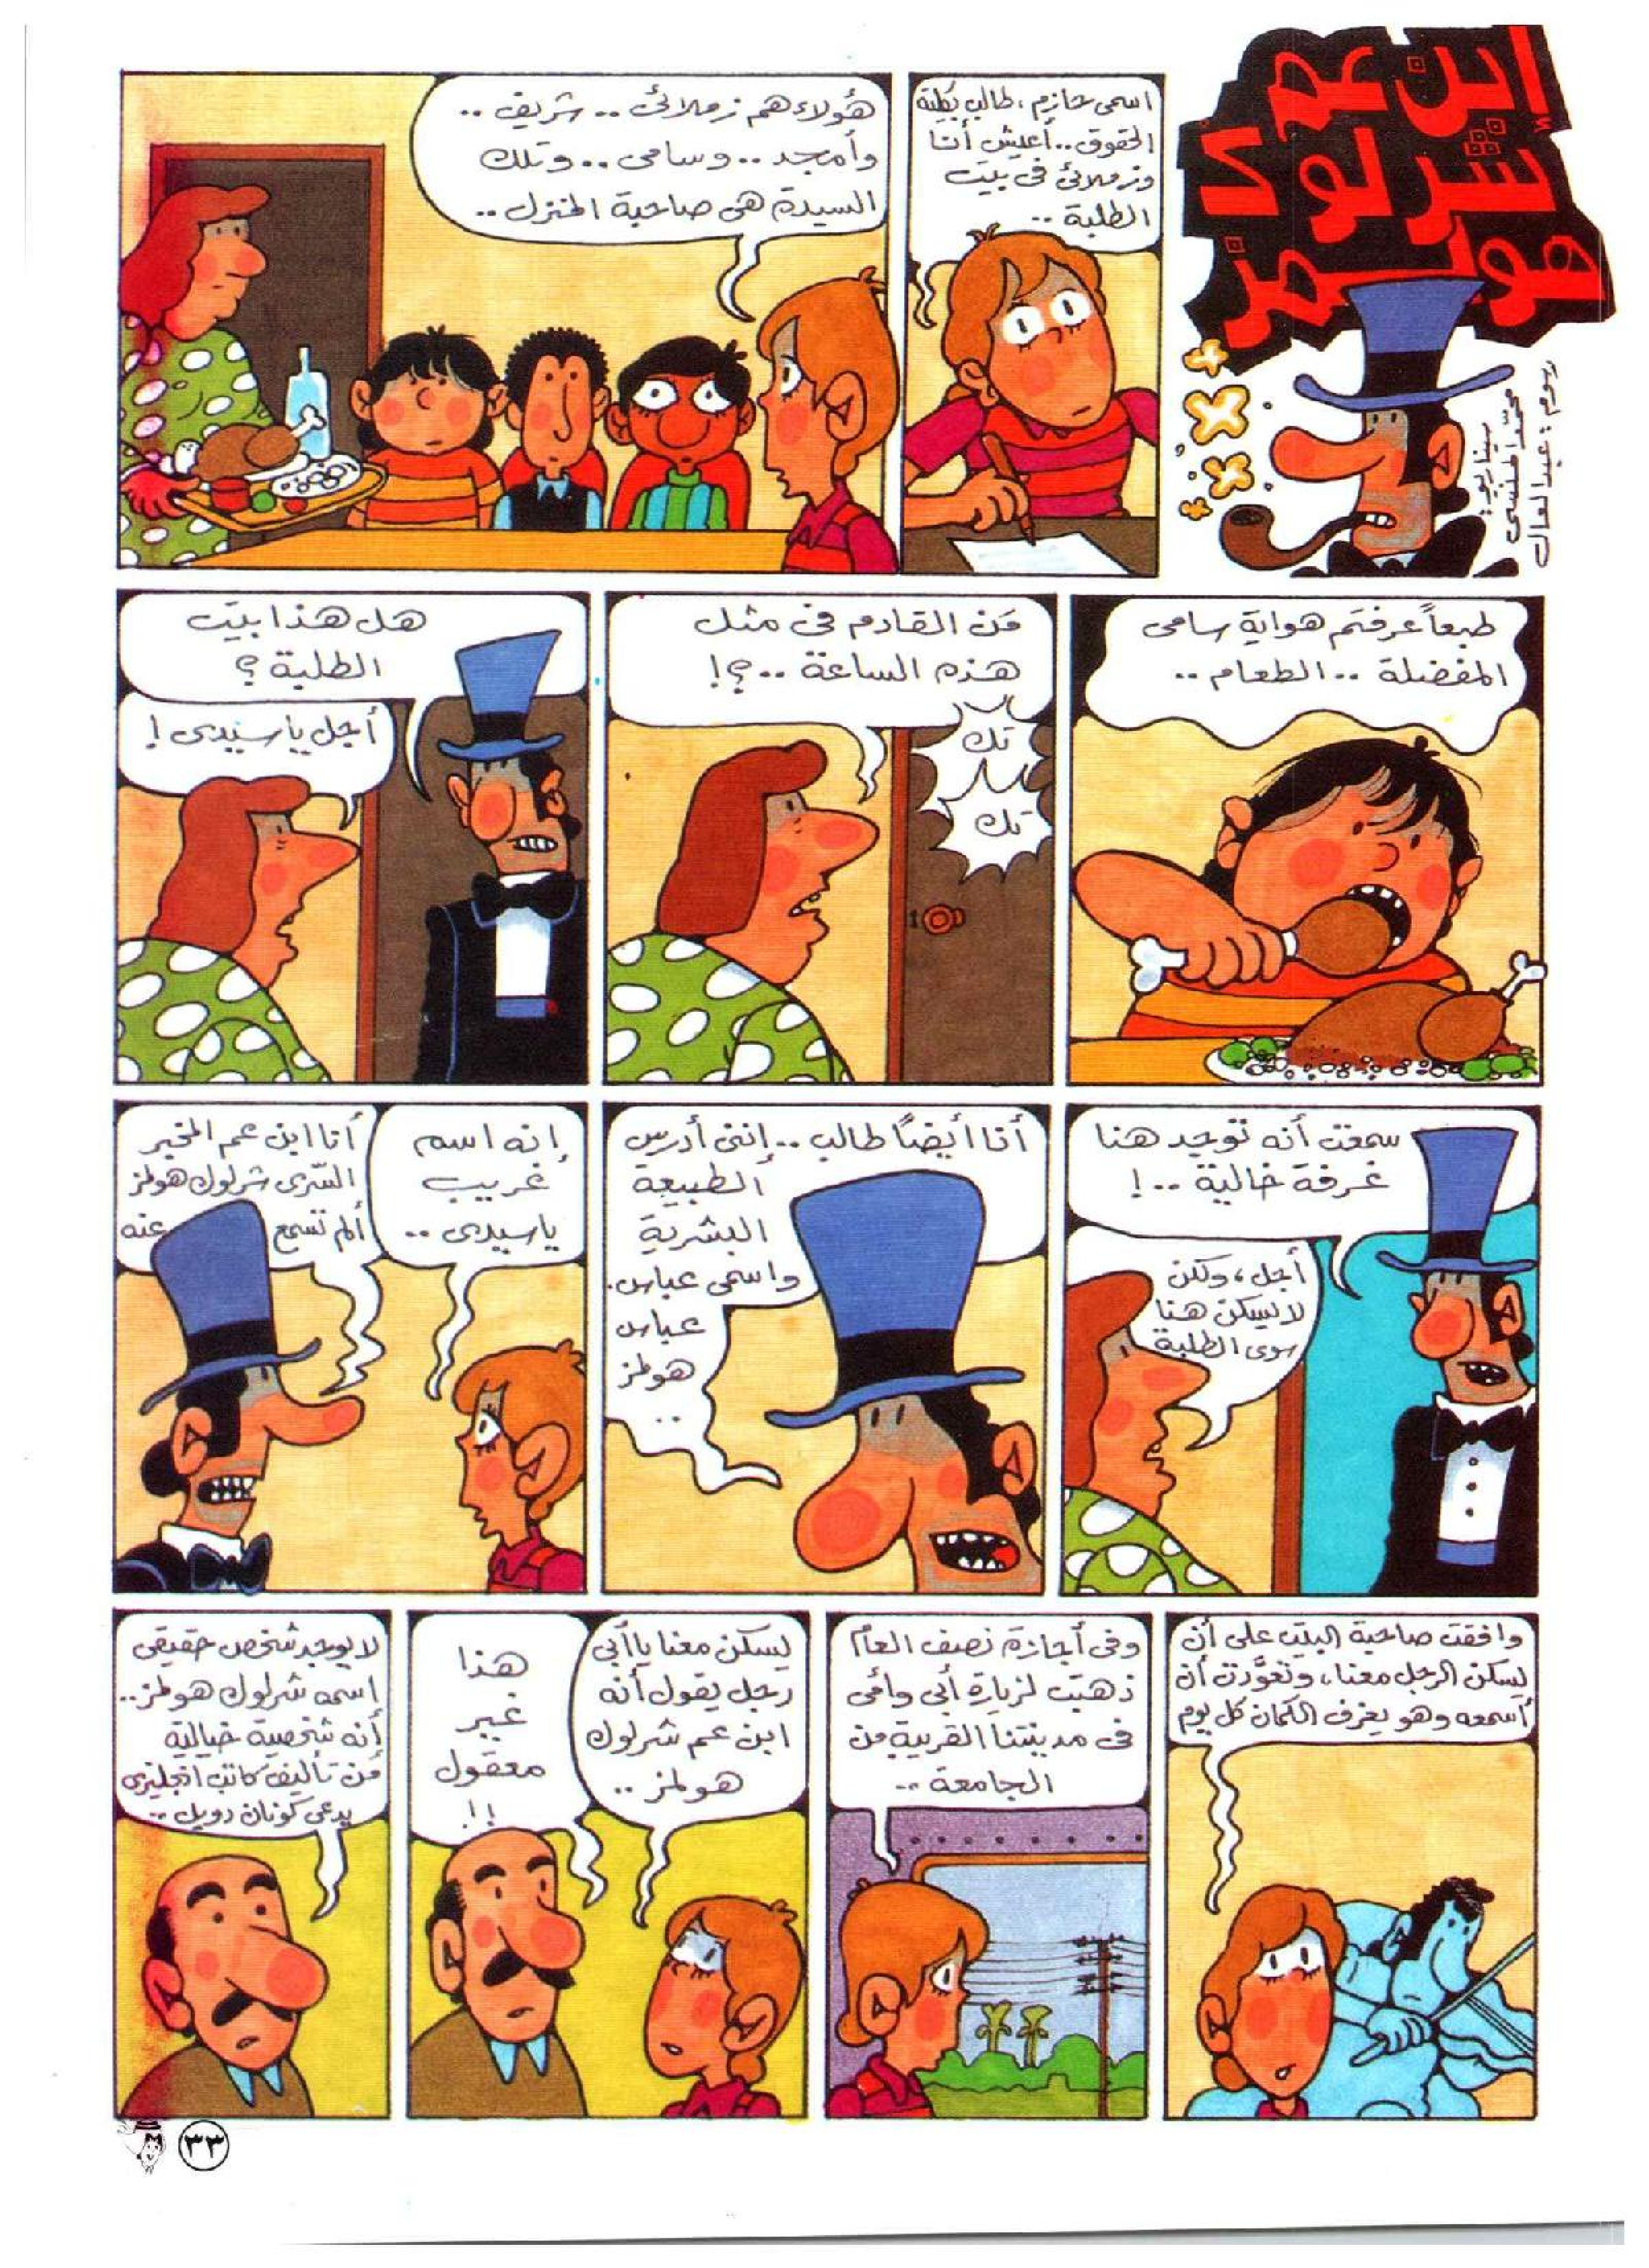 إبن عم
شرلوك
هولمز
سيناريو:
محمد المنسى
رسوم: عبدالعال
اسمى حازم، طالب بكلية
الحقوق.. أعيش أنا
وزملائى فى بيت
الطلبة ..
هؤلاء هم زملائى .. شريف ..
وأمجد .. وسامى .. وتلك
السيدة هى صاحبة المنزل ..
طبعاً عرفتم هواية سامى
المفضلة .. الطعام ..
مَن القادم فى مثل
هذه الساعة ..؟!
تك
تك
هل هذا بيت
الطلبة ؟
أجل يا سيدى !
سمعت أنه توجد هنا
غرفة خالية ..!
أجل، ولكن
لا يسكن هنا
سوى الطلبة
أنا أيضاً طالب .. إننى أدرس
الطبيعة
البشرية
واسمى عباس.
عباس
هولمز
..
إنه اسم
غريب
يا سيدى ..
أنا ابن عم المخبر
السّرى شرلوك هولمز
ألم تسمع عنه
وافقت صاحبة البيت على أن
يسكن الرجل معنا، وتعوّدت أن
أسمعه وهو يعزف الكمان كل يوم
وفى أجازة نصف العام
ذهبت لزيارة أبى وأمى
فى مدينتنا القريبة من
الجامعة ..
يسكن معنا يا أبى
رجل يقول أنه
ابن عم شرلوك
هولمز ..
هذا
غير
معقول
!!
لا يوجد شخص حقيقى
اسمه شرلوك هولمز ..
أنه شخصية خيالية
من تأليف كاتب انجليزى
يدعى كونان دويل ..
٣٣